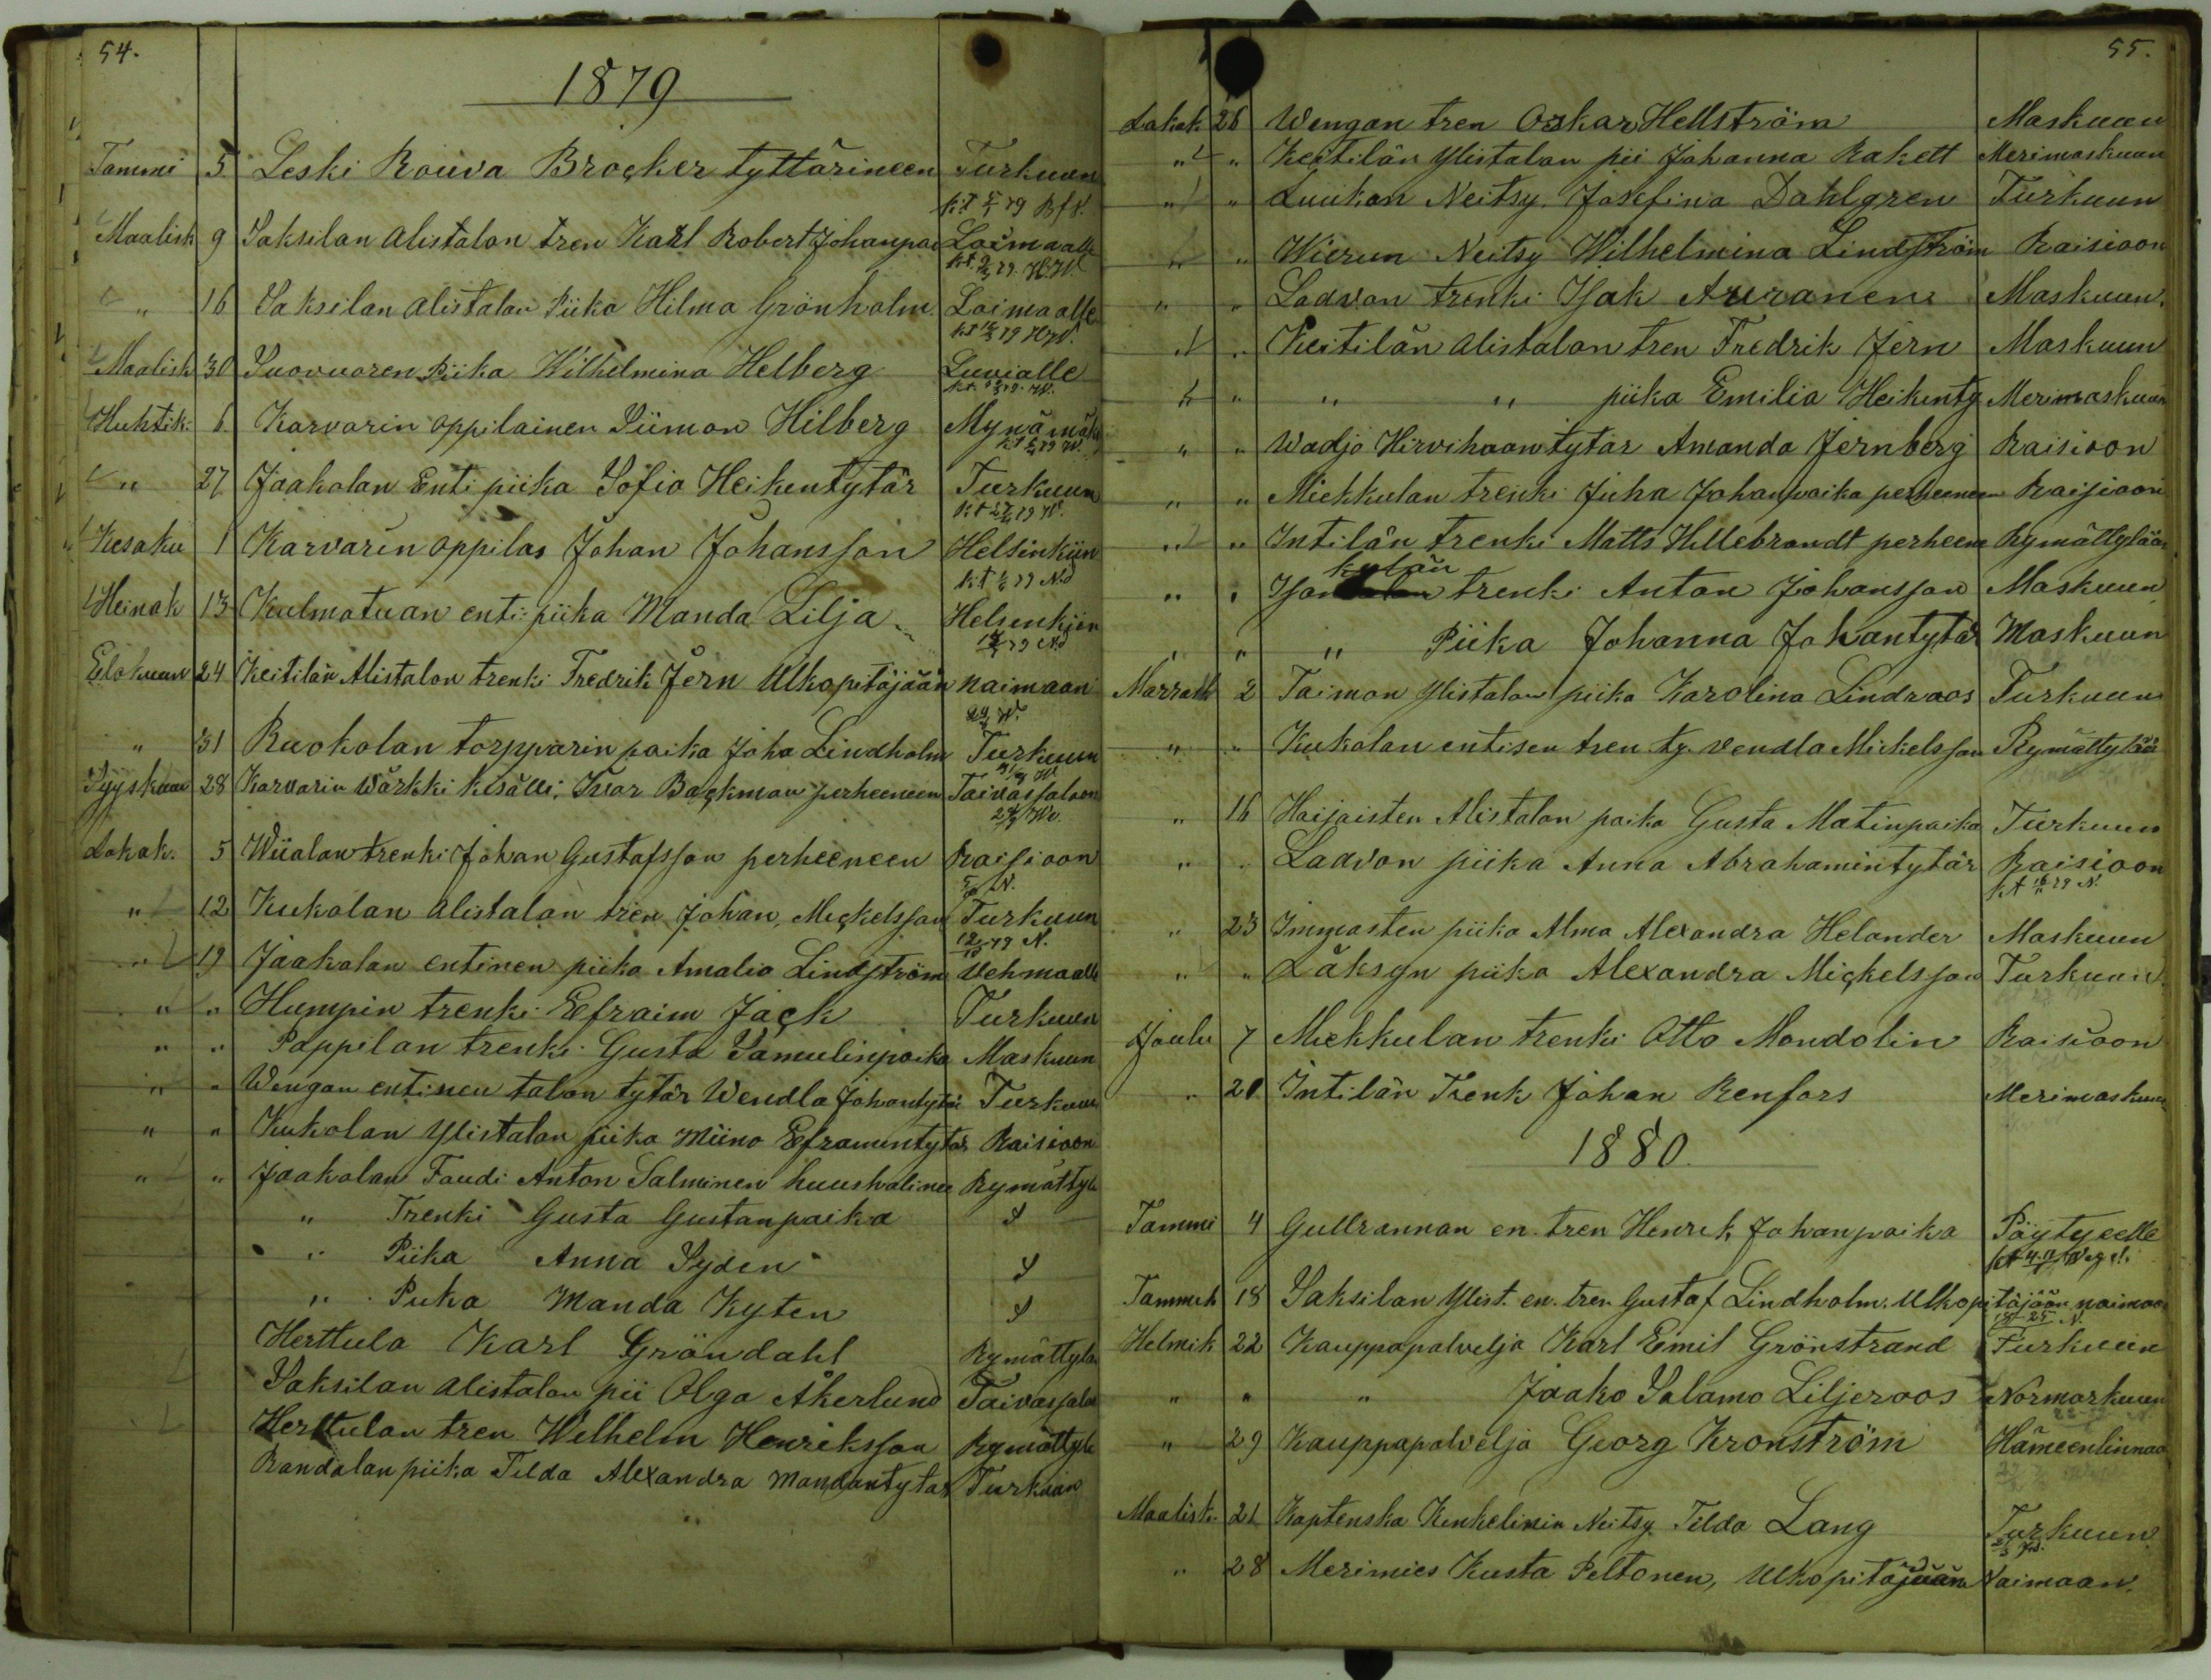 54.
1879
Tammi 5 Leski Rouva Brocker tyttärineen Turkuun
Maalisk 9 Saksilan alistalon tren Karl Robert Johanpoi Loimaalle
" 16 Saksilan alistalon Piika Hilma Grönholm Loimaalle
Maalisk 30 Suovuoren Piika Wilhelmina Helberg Luvialle
Huhtik. 6 Karvarin oppilainen Siimon Hilberg Mynämäk
" 27 Jaakolan Enti piika Sofia Heikentytär Turkuun
Kesäku 1 Karvarin oppilas Johan Johansson Helsinkiin
Heinäk 13 Kulmatuan enti: piika Manda Lilja Helsenkiin
Elokuun 24 Keitilän Alistalon trenki Fredrik Jern Ulkopitäjään naimaan
" 31 Ruokolan torpparin poika Joha Lindholm Turkuun
Syyskuu 28 Karvarin Wärkki kisälli Ivar Backman perheeneen Taivassaloon
Lokak. 5 Wiialan trenki Johan Gustafsson perheeneen Raisioon
" 12 Kukolan alistalon tren Johan Mickelsson Turkuun
" 19 Jaakolan entinen piika Amalia Lindström Vehmaalle
" " Humpin trenki Efraim Jack Turkuun
" " Pappilan trenki Gusta Samulinpoika Maskuun
" " Wengan entinen talon tytär Wendla Johantytär Turkuun
" " Kukolan Ylistalon piika Miina Eframintytär Raisioon
" " Jaakolan Foudi Anton Salminen huushollinee Rymättyle
" Trenki Gusta Gustanpoika
" Piika Anna Syden
" Piika Manda Kyten
Herttula Karl Gröndahl Rymättylä
Saksilan alistalon pii Olga Åkerlund Taivassalo
Herttulan tren Wilhelm Henriksson Rymättyle
Randalan piika Tilda Alexandra Mandantytär Turkuun
55.
Lokak 26 Wengan tren Oskar Hellström Maskuun
" " Keitilän Ylistalon pii Johanna Rakett Merimaskuun
" " Luukon Neitsy Josefina Dahlgren Turkuun
" " Wierun Neitsy Wilhelmina Lindström Raisioon
" " Ladvon trenki Isak Auranen Maskuun
" " Keitilän alistalon tren Fredrik Jern Maskuun
" " " " piika Emilia Heikinty Merimaskuun
" " Wadjo Hirvihaan tytär Amanda Jernberg Raisioon
" " Miekkulan trenki Juha Johanpoika perheeneen Raisioon
" " Intilän trenki Matts Hillebrandt perheene Rymättylään
kylän
" " Ison trenki Anton Johansson Maskuun
" " " Piika Johanna Johantytär Maskuun
Marrask 2 Taimon Ylistalon piika Karolina Lindroos Turkuun
" " Kukolan entisen tren ty. Vendla Mickelsson Rymättylää
" 16 Haijaisten Alistalon poika Gusta Matinpoika Turkuun
" " Ladvon piika Anna Abrahamintytär Raisioon
" 23 Immasten piika Alma Alexandra Helander Maskuun
" " Läksyn piika Alexandra Mickelsson Turkuun
Joulu 7 Miekkulan trenki Otto Mandolin Raisioon
" 20 Intilän Trenk Johan Renfors Merimaskuun
1880.
Tammi 4 Gullrannan en. tren Henrik Johanpoika Pöytyeelle
Tammik 18 Saksilan Ylist. en. tren Gustaf Lindholm. Ulkopitäjään naimaa
Helmik 22 Kauppapalvelja Karl Emil Grönstrand Turkuun
" " " Jaako Salamo Liljeroos Normarkuun
" 29 Kauppapalvelja Georg Kronström Hämeenlinnaa
Maalisk. 21 Kaptenska Kenkelinin Neitsy Tilda Lang Turkuun
" 28 Merimies Kusta Peltonen, Ulkopitäjään Naimaan.